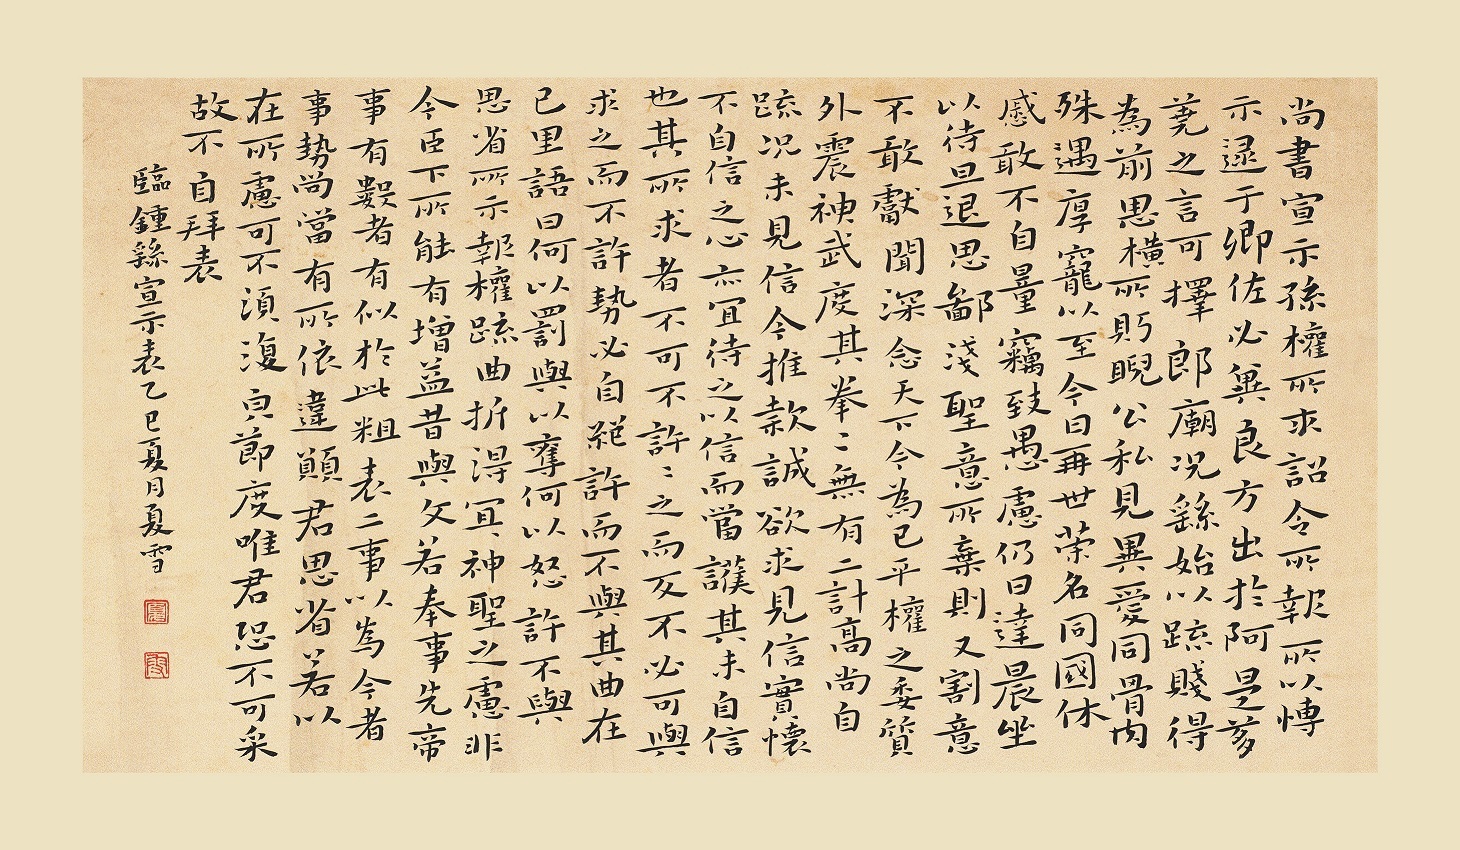 尚書宣示孫權所求詔令所報所以博
示逯于卿佐必冀良方出於阿是芻
蕘之言可擇郎廟況繇始以疏賤得
為前恩橫所盻睨公私見異愛同骨肉
殊遇厚寵以至今日再世榮名同國休
慼敢不自量竊致愚慮仍日達晨坐
以待旦退思鄙淺聖意所棄則又割意
不敢獻聞深念天下今為已平權之委質
外震神武度其拳〻無有二計高尚自
疏況未見信今推款誠欲求見信實懷
不自信之心亦宜待之以信而當護其未自信
也其所求者不可不許〻之而反不必可與
求之而不許勢必自絕許而不與其曲在
己里語曰何以罰與以奪何以怒許不與
思省所示報權疏曲折得宜神聖之慮非
今臣下所能有增益昔與文若奉事先帝
事有數者有似於此粗表二事以為今者
事勢尚當有所依違願君思省若以
在所慮可不須復貞節度唯君恐不可采
故不自拜表
臨鍾繇宣示表乙巳夏月夏雪